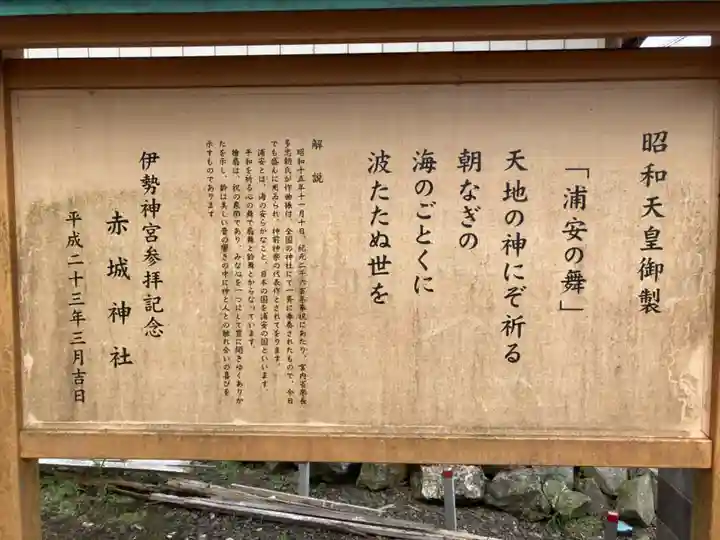 昭和天皇御製
「浦安の舞」
天地の神にぞ祈る
朝なぎの
海のごとくに
波たたぬ世を
解説
昭和十五年十一月十日、紀元二千六百年奉祝にあたり、宮内省楽長
多忠朝氏が作曲振付、全国の神社にて一斉に奉奏されたもので、今日
でも盛んに用いられ、神前神楽の代表作とされております。
浦安とは、海の安らかなこと、日本の国を浦安の国といいます。
平和を祈る心の舞で扇舞と鈴舞とからなっています。
檜扇は、祝の象徴であり、みな心を一つにして豊に開きゆくありか
たを示し、鈴は美しい音の響きの中に神と人との触れ合いの喜びを
示すものであります。
伊勢神宮参拝記念
赤城神社
平成二十三年三月吉日